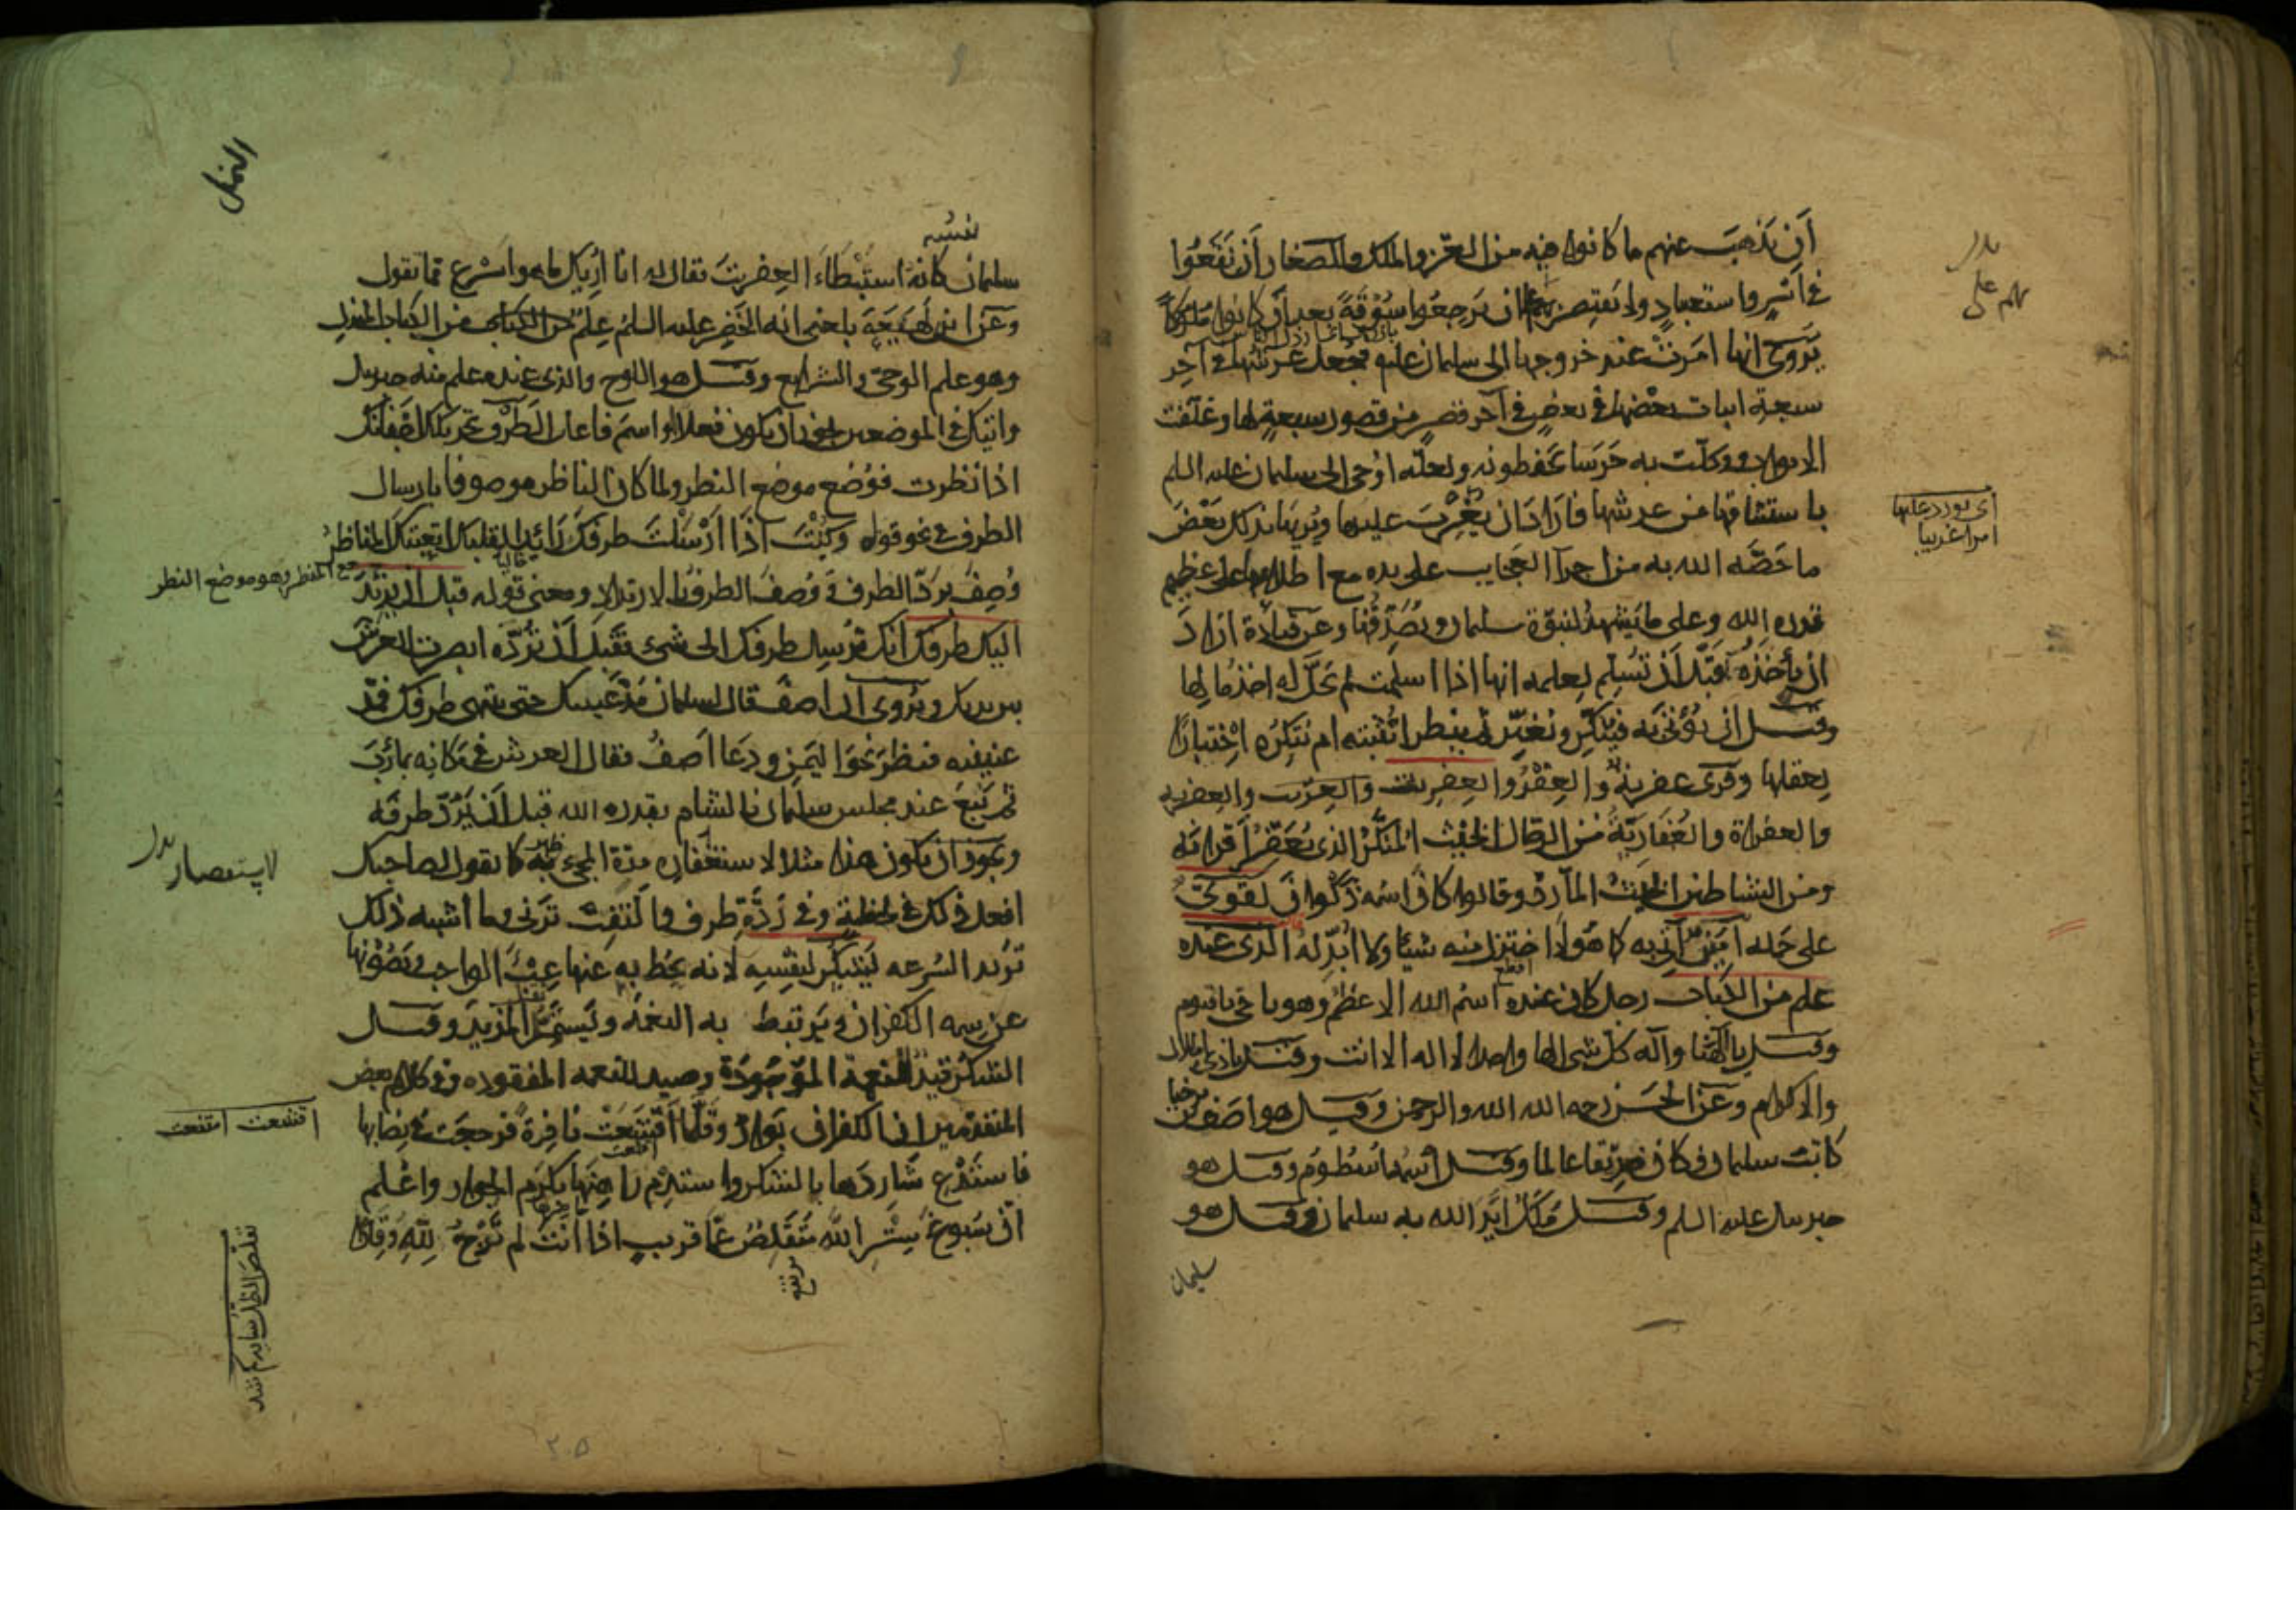 أن يذهب عنهم ما كانوا فيه من العز والملك والصغار أن يقعوا
في أسر واستعباد ولا يقتصر بهم على ان يرجعوا سوقة بعد أن كانوا ملوكا
يروى انها امرت عند خروجها الى سليمان عليه فجعل عرشها في آخر
سبعة ابيات بعضها في بعض في آخر قصر من قصور سبعة لها وغلقت
الابواب ووكلت به حرسا يحفظونه ولعله اوحى الى سليمان عليه السلم
باستيثاقها من عرشها فاراد ان يغرب عليها ويريها بذلك بعض
ما خصه الله به من اجراء العجايب على يده مع اطلاعها على عظيم
قدرة الله وعلى ما يشهد لنبوة سليمان ويصدقها وعن قتادة اراد
ان يأخذه قبل أن تسلم لعلمه انها اذا اسلمت لم يحل له اخذ مالها
وقيل اراد ان يؤتى به فينكر ويغير ثم ينظر اتثبته ام تنكره اختبارا
لعقلها وقرى عفرية والعفر والعفريت والعفرية
والعفراة والعفارية من الرجال الخبيث المنكر الذي يعفر أقرانه
ومن الشياطين الخبيث المارد وقالوا كان اسمه ذكوان لقوي
على حمله امين آتي به كما هو لا اختزل منه شيا ولا ابدله الذى عنده
علم من الكتاب رجل كان عنده اسم الله الاعظم وهو يا حي يا قيوم
وقيل يا الهنا واله كل شى الها واحدا لا اله الا انت وقيل يا ذا الجلال
والاكرام وعن الحسن رحمه الله الله والرحمن وقيل هو اصف بن برخيا
كاتب سليمان وكان صديقا عالما وقيل اسمه اسطوم وقيل هو
جبريل عليه السلم وقيل ملك ايد الله به سليمان وقيل هو
سليمان
بدل
بهم على
اى يورد عليها
امرا غريبا
النمل
نفسه
سليمان كانه استبطاء العفريت فقال له انا اريك ما هو اسرع مما تقول
وعن ابن لهيعة بلغنى انه الخضر عليه السلم علم من الكتاب من الكتاب المنزل
وهو علم الوحي والشرايع وقيل هو اللوح والذى عنده علم منه جبريل
واتيك في الموضعين يجوز ان يكون فعلا او اسم فاعل الطرف تحريك اجفانك
اذا نظرت فوضع موضع النظر ولما كان الناظر موصوفا بارسال
الطرف في نحو قوله وكنت اذا ارسلت طرفك رائدا لقلبك اتعبتك المناظر
وصف برد الطرف ووصف الطرف بالارتداد ومعنى قوله قبل أن يرتد
اليك طرفك انك ترسل طرفك الى شيء فقبل أن ترده ابصرت العرش
بين يديك ويروى ان اصف قال لسليمان مد عينيك حتى ينتهى طرفك فمد
عينيه فنظر نحو اليمن ودعا اصف فغار العرش في مكانه بمأرب
ثم نبع عند مجلس سليمان بالشام بقدرة الله قبل أن يرد طرفه
ويجوز ان يكون هذا مثلا لاستقصار مدة المجيء به كما تقول لصاحبك
افعل ذلك في لحظة وفي ردة طرف والتفت ترني وما اشبه ذلك
تريد السرعة يشكر لنفسه لانه يحط به عنها عبء الواجب ويصونها
عن سمة الكفران ويرتبط به النعمة ويستمد المزيد وقيل
الشكر قيد النعمة الموجودة وصيد للنعمة المفقودة وفي كلام بعض
المتقدمين ان الكفران بوار وقلما اقشعت نافرة فرجعت في نصابها
فاستدع شاردها بالشكر واستدم راهنها بكرم الجوار واعلم
ان سبوغ ستر الله متقلص عما قريب اذا انت لم ترج لله وقارا
جمع المنظر وهو موضع النظر
لاستقصار بدل
اقشعت
مرتفع
٢٠٥